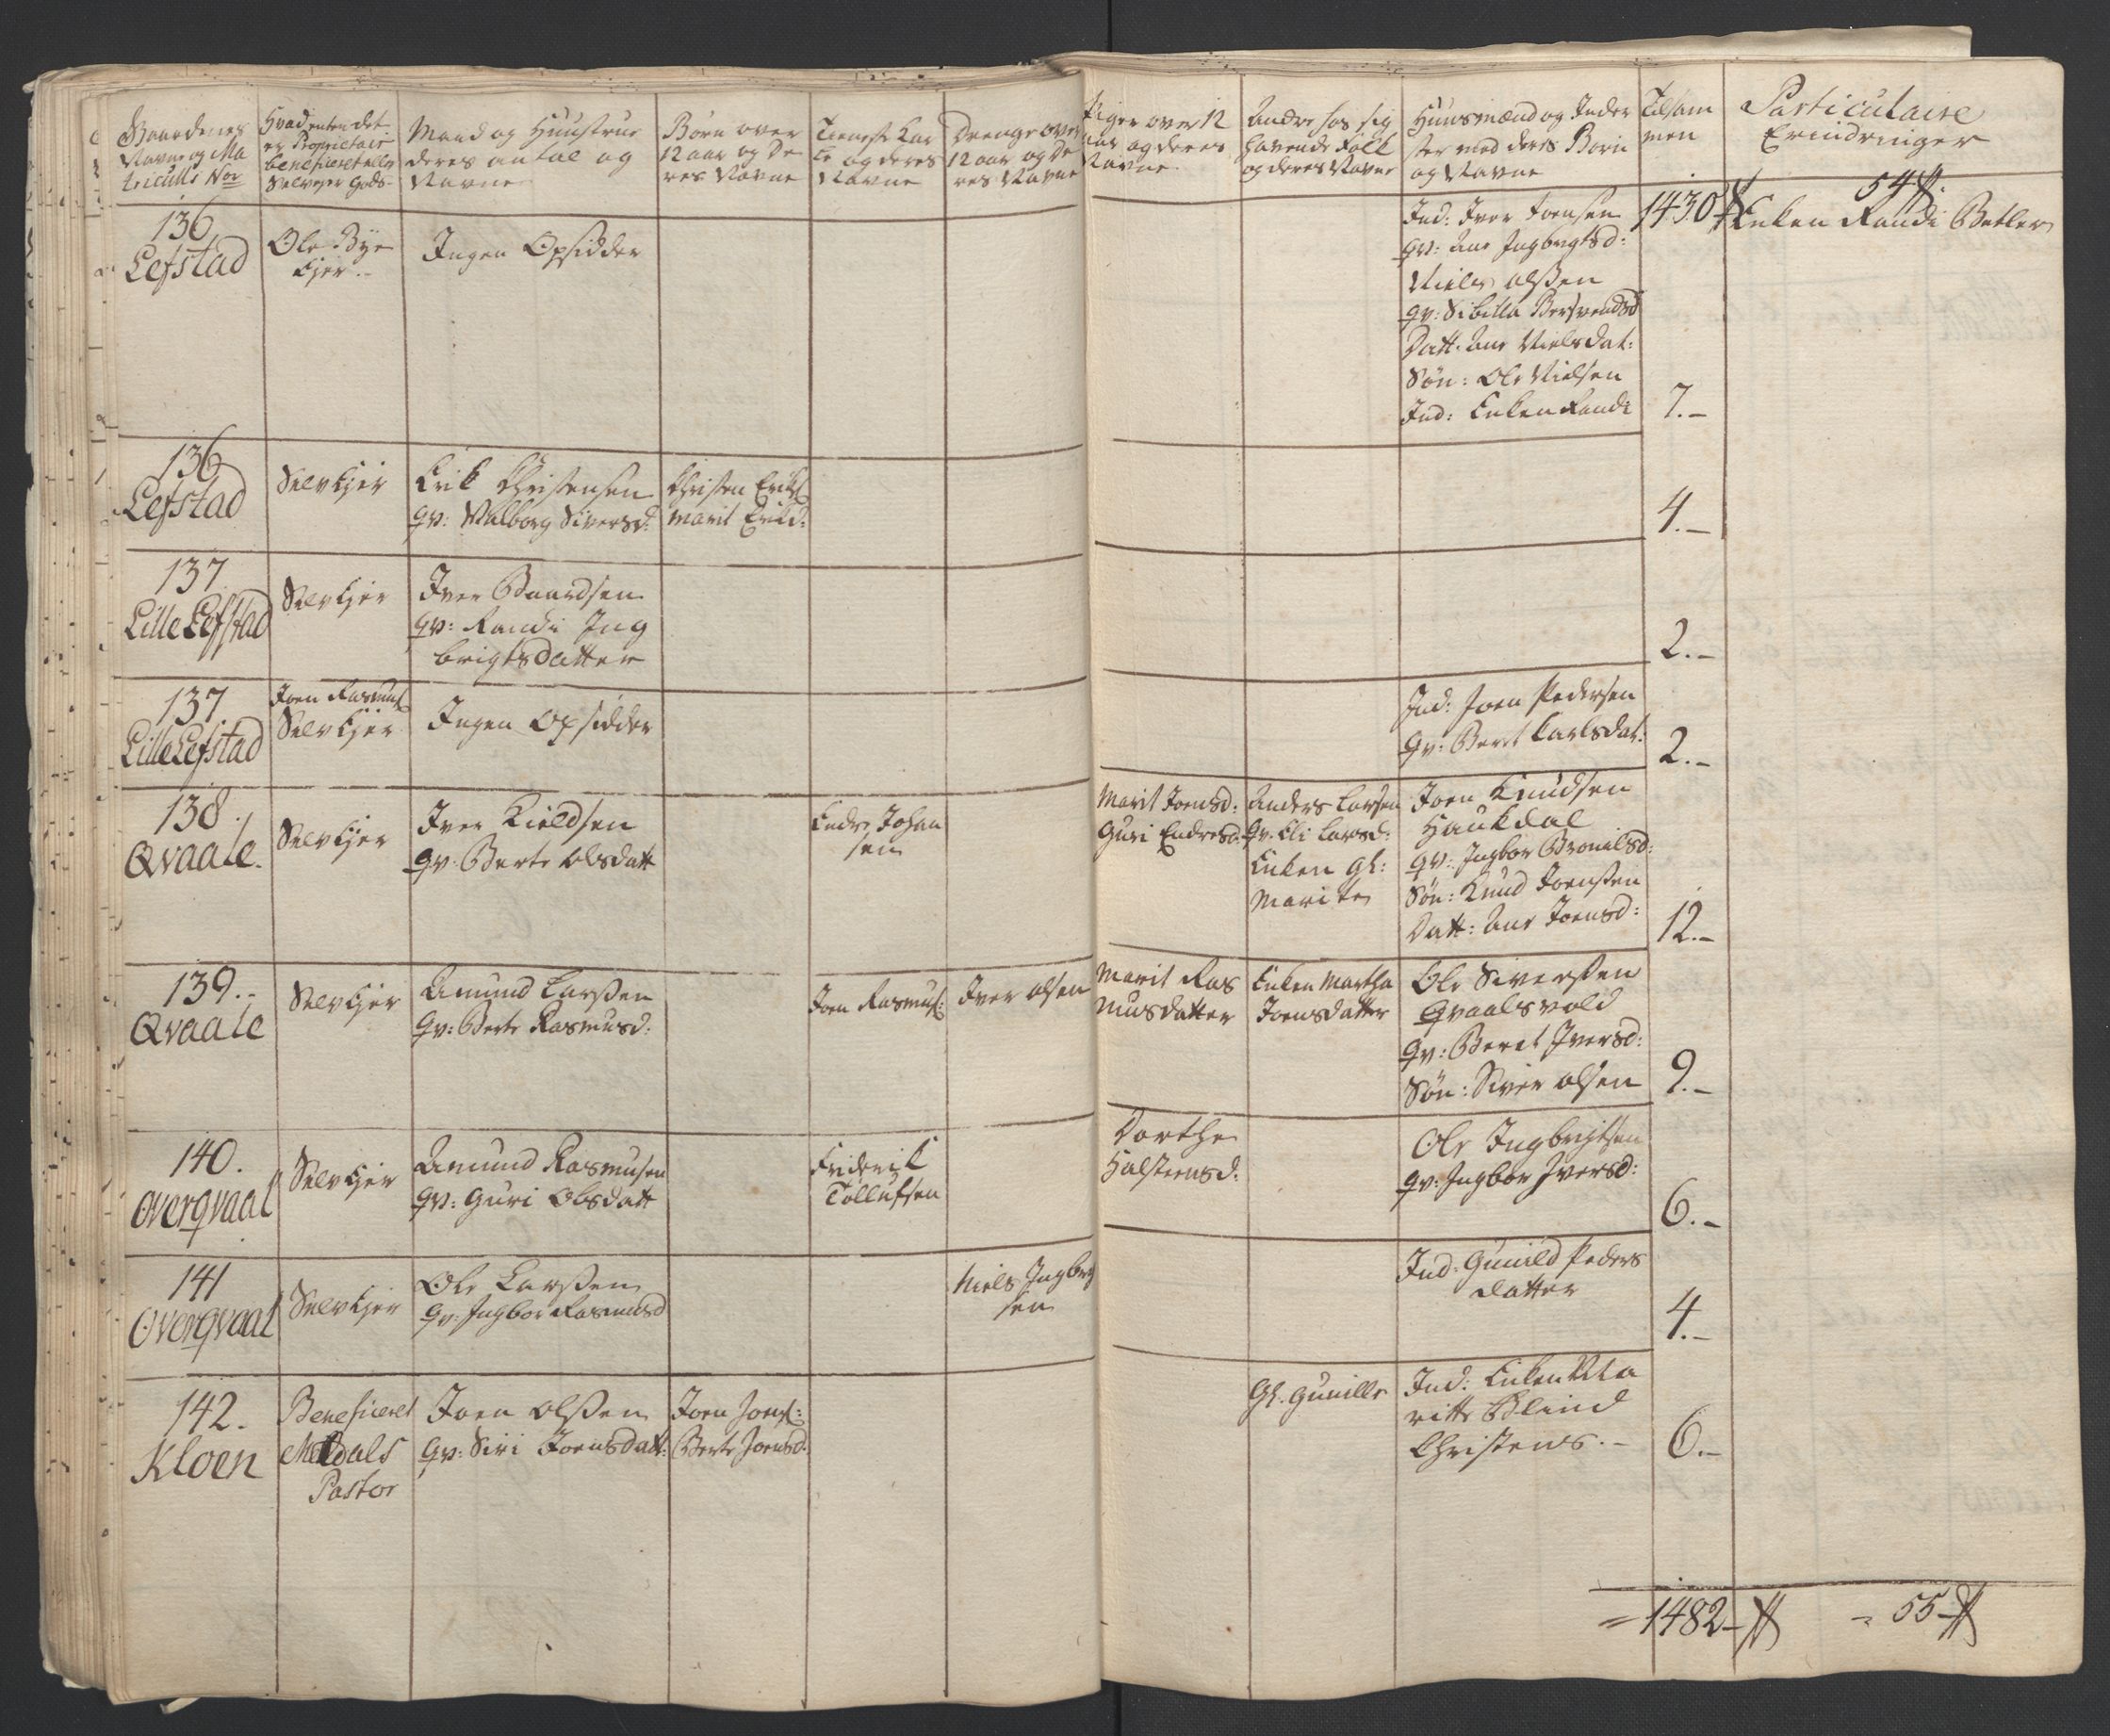 Gaardenes
Navne og Ma
triculls Nor
Hvad enten det
er Proprietair
beneficeret eller
Selvejer Gods
Mand og Huustrue
deres antal og
Navne
Børn over
12 aar og De
res Navne
Tieneste Kar
le og deres
Navne
Drenge over
12 aar og De
res Navne
Piger over 12
aar og deres
Navne
Andre hos sig
havende Folk
og deres Navne
Huusmænd og Inder
ster med deres Børn
og Navne
Tilsam
men
Particulaire
Erindringer
136
Lefstad
Ole Bye
Ejer.
Ingen Opsidder
Ind: Iver Joensen
qv: Ane Ingbrigtsd:
Niels olsen
qv: Sibilla Bersvendsd
Datt: Ane Nielsdat:
Søn: Ole Nielsen
Ind: Enken Randi
1430
7.-
54
Enken Randi Betler
136
Lefstad
Selvejer
Erik Christensen
qv: Valborg Siversd:
Christen Eriks
Marit Erikd:
4.-
137
Lille Lefstad
Selvejer
Iver Baardsen
qv: Randi Ing
brigtsdatter
2.-
137
Lille Lefstad
Joen Rasmus
Selvejer
Ingen Opsidder
Ind: Joen Pedersen
qv: Beret Carlsdat:
2.-
138.
Qvaale.
Selvejer
Iver Kieldsen
qv: Berte Olsdatt
Endre Johan
sen
Marit Joensd:
Guri Endresd:
Anders Larsen
qv: Eli Larsd:
Enken gl:
Marite
Joen Knudsen
Haukdal
qv: Ingbor Bronilsd:
Søn: Knud Joensen
Datt: Ane Joensd:
12.-
139.-
Qvaale
Selvejer
Amund Larsen
qv: Berte Rasmusd:
Joen Rasmus:
Iver olsen
Marit Ras
musdatter
Enken Martha
Joensdatter
Ole Siversen
Qvaalsvold
qv: Beret Iversd:
Søn: Siver olsen
9.-
140.
Overqvaal
Selvejer
Amund Rasmusen
qv: Guri Olsdatt
Friderik
Tollufsen
Dorthe
Halsteensd:
Ole Ingbrigtsen
qv: Ingbor Iversd:
6.-
141
Overqvaal
Selvejer
Ole Larsen
qv: Ingbor Rasmusd
Niels Ingbrig
sen
Ind: Gunild Peders
datter
4.-
142.
Kloen
Beneficeret
Meldals
Pastor
Joen olsen
qv: Siri Joensdatt:
Joen Joens:
Berte Joensd:
Gl. Gunille
Ind: Enken Ma
ritte Blind
Christens.-
6.-
= 1482-
- 55-